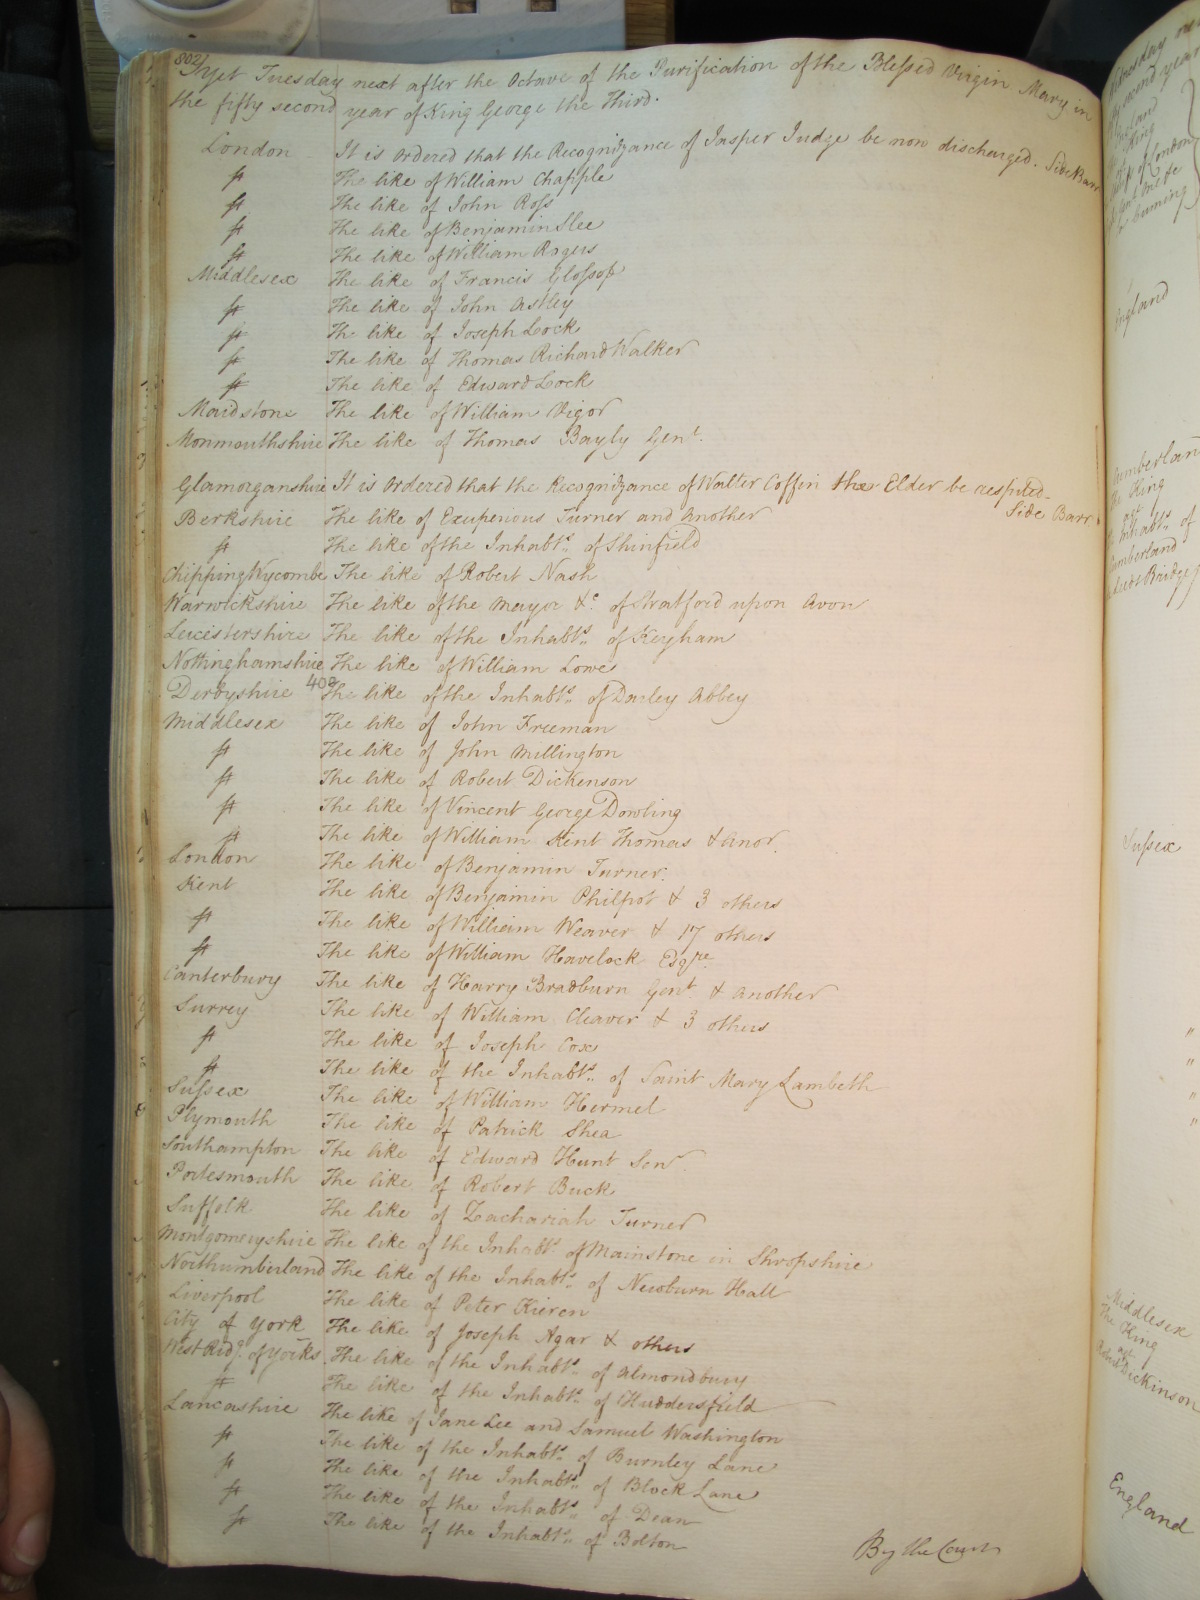 802
Yet Tuesday next after the Octave of the Purification of the Blessed Virgin Mary in
the fifty second year of King George the Third.
London It is Ordered that the Recognizance of Jasper Judge be now discharged. Side Barr
st The like of William Chapple
st The like of John Ross
st The like of Benjamin Slee
st The like of William Rogers
Middlesex The like of Francis Glossop
st The like of John Astley
st The like of Joseph Lock
st The like of Thomas Richard Walker
st The like of Edward Lock
Maidstone The like of William Vigor
Monmouthshire The like of Thomas Bayly Gent.
Glamorganshire It is Ordered that the Recognizance of Walter Coffin the Elder be respited
Side Barr
Berkshire The like of Exuperious Turner and Another
st The like of the Inhabts. of Shinfield
Chipping Wycombe The like of Robert Nash
Warwickshire The like of the Mayor &c. of Stratford upon Avon
Leicestershire The like of the Inhabts. of Keyham
Nottinghamshire The like of William Lowe
402
Derbyshire The like of the Inhabts. of Darley Abbey
Middlesex The like of John Freeman
st The like of John Millington
st The like of Robert Dickenson
st The like of Vincent George Dowling
st The like of William Kent Thomas & Anor.
London The like of Benjamin Turner.
Kent The like of Benjamin Philpot & 3 others
st The like of William Weaver & 17 others
st The like of William Havelock Esqre.
Canterbury The like of Harry Bradburn Gent. & Another
Surrey The like of William Cleaver & 3 others
st The like of Joseph Cox
st The like of the Inhabts. of Saint Mary Lambeth
Sussex The like of William Hermel
Plymouth The like of Patrick Shea
Southampton The like of Edward Hunt Senr.
Portesmouth The like of Robert Buck
Suffolk The like of Zachariah Turner
Montgomeryshire The like of the Inhabts. of Mainstone in Shropshire
Northumberland The like of the Inhabts. of Newburn Hall
Liverpool The like of Peter Kieren
City of York The like of Joseph Agar & others
West Ridg. of Yorks The like of the Inhabts. of Almondbury
st The like of the Inhabts. of Huddersfield
Lancashire The like of Jane Lee and Samuel Washington
st The like of the Inhabts. of Burnley Lane
st The like of the Inhabts. of Block Lane
st The like of the Inhabts. of Dean
st The like of the Inhabts. of Bolton
By the Court
England
Cumberland
The King
Inhabts. of
Cumberland
Sussex
Middlesex
The King
agt
Robert Dickinson
England